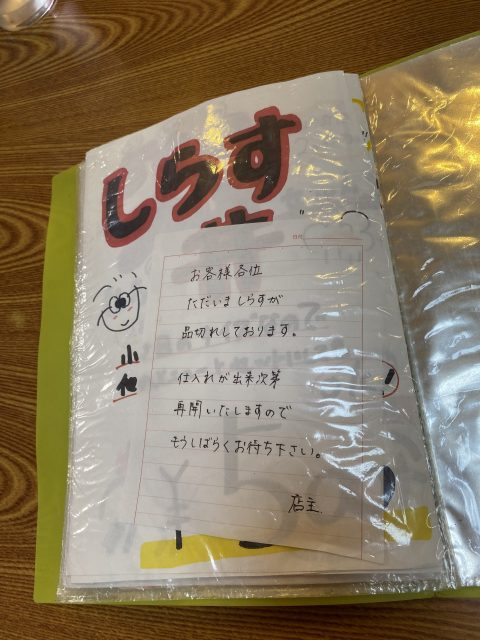 しらす
お客様各位
ただいましらすが
品切れしております。
仕入れが出来次第
再開いたしますので
そうしばらくお待ち下さい。
店主
小
¥